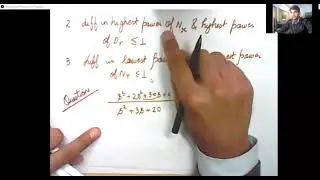 2 diff in highest power of Nr & highest power
of Dr ≤ 1
3 diff in lowest power
west power
of Nr ≤ 1
Question
s² + 2s² + 3
s² + 3s + 20